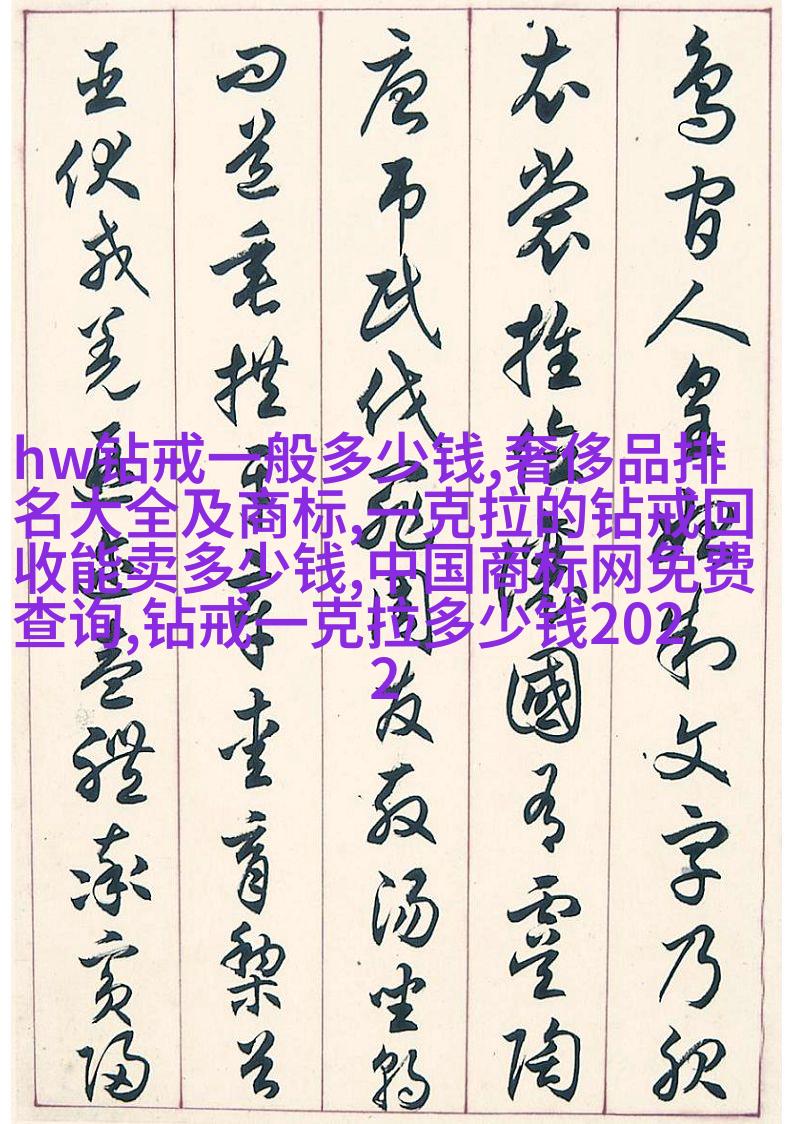 鳥官人皇始制文字乃服
衣裳推位讓國有虞陶
唐吊民伐罪周發殷湯坐朝
問道垂拱平章愛育黎首
臣伏戎羌遐邇壹體率賓歸
hw钻戒一般多少钱,奢侈品排
名大全及商标,一克拉的钻戒回
收能卖多少钱,中国商标网免费
查询,钻戒一克拉多少钱202
2